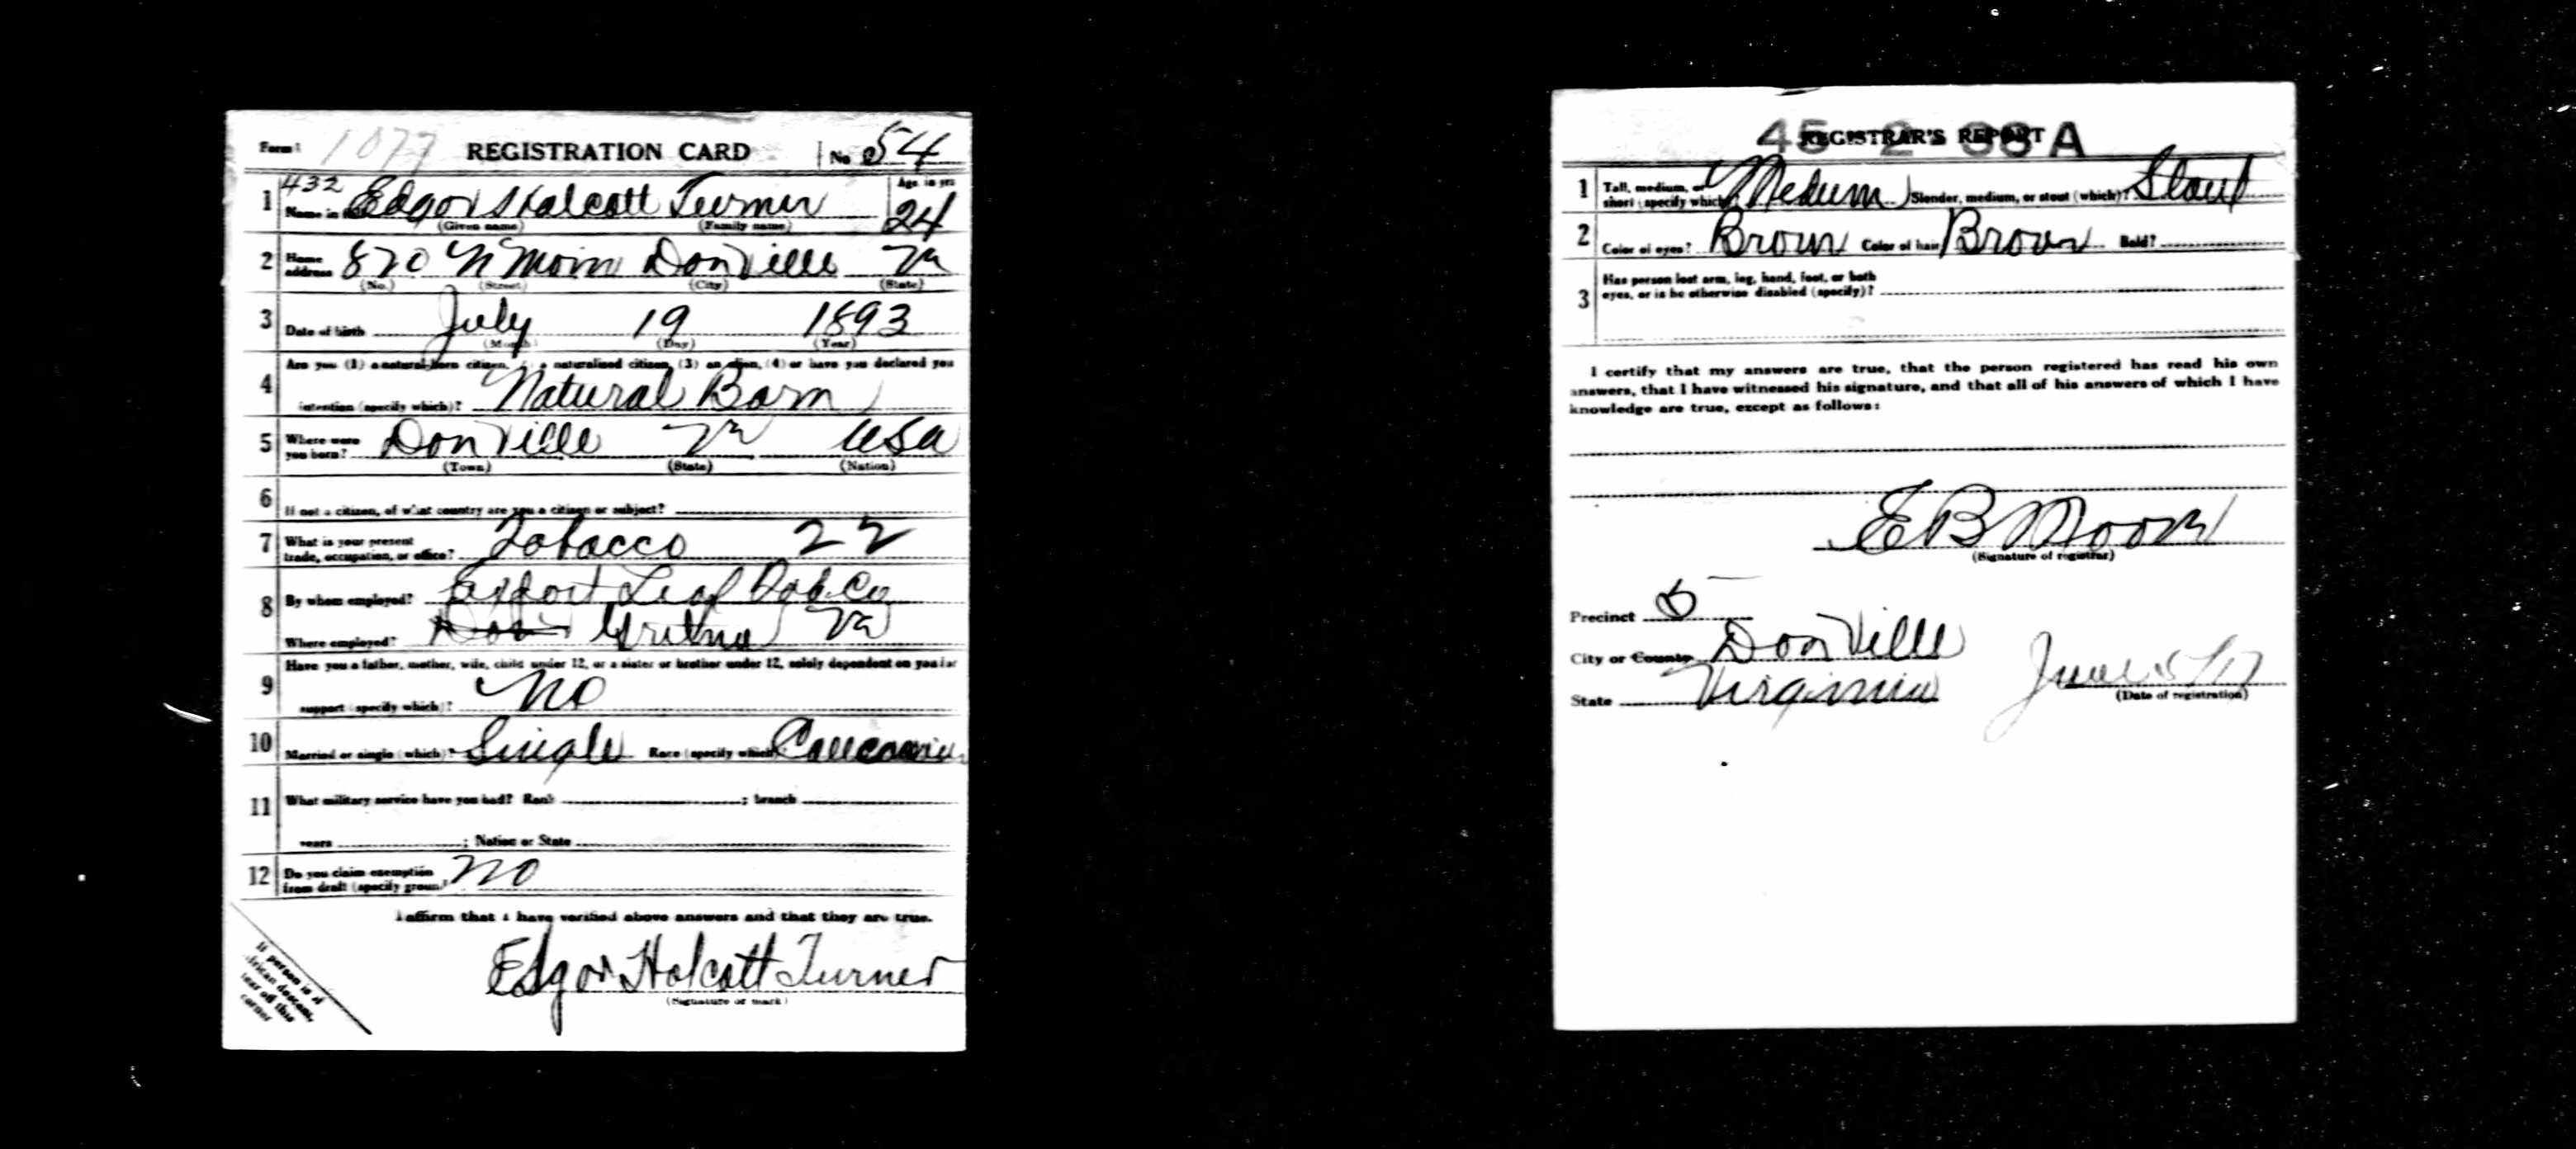 Form 1 1077 REGISTRATION CARD No 54
432 Edgar Halcott Turner Age, in yrs
1 Name in full 24
(Given name) (Family name)
2 Home address 870 N Main Danville Va
(No.) (Street) (City) (State)
3 Date of birth July 19 1893
(Month) (Day) (Year)
Are you (1) a natural-born citizen, a naturalized citizen, (3) an alien, (4) or have you declared your
4 intention (specify which)? Natural Born
5 Where were you born? Danville Va USA
(Town) (State) (Nation)
6 If not a citizen, of what country are you a citizen or subject?
7 What is your present
trade, occupation, or office? Tobacco 22
8 By whom employed? Export Leaf Tob. Co
Where employed? Gretna Va
Have you a father, mother, wife, child under 12, or a sister or brother under 12, solely dependent on you for
9 support (specify which)? No
10 Married or single (which)? Single Race (specify which)? Caucasian
11 What military service have you had? Rank ; branch
years ; Nation or State
12 Do you claim exemption
from draft (specify grounds)? No
I affirm that I have verified above answers and that they are true.
Edgar Halcott Turner
(Signature or mark)
If person is of
African descent,
tear off this
corner
REGISTRAR'S REPORT
45 2 33 A
1 Tall, medium, or
short (specify which)? Medium Slender, medium, or stout (which)? Stout
2 Color of eyes? Brown Color of hair? Brown Bald?
Has person lost arm, leg, hand, foot, or both
3 eyes, or is he otherwise disabled (specify)?
I certify that my answers are true, that the person registered has read his own
answers, that I have witnessed his signature, and that all of his answers of which I have
knowledge are true, except as follows:
E B Moore
(Signature of registrar)
Precinct 5
City or County Danville
State Virginia June 5/17
(Date of registration)